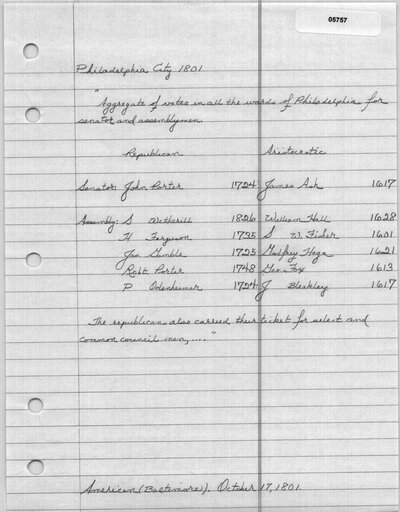 05757
Philadelphia City 1801
"Aggregate of votes in all the wards of Philadelphia for
senator and assemblymen.
Republican Aristocratic
Senator: John Porter 1724 James Ash 1617
Assembly: S Wetherill 1826 William Hall 1628
H Ferguson 1735 S W. Fisher 1601
Jas. Gamble 1725 Godfrey Haga 1621
Robt. Porter 1748 Geo. Fox 1613
P Odenheimer 1724 J Bleakley 1617
The republicans also carried their ticket for select and
common council men,...."
American (Baltimore). October 17, 1801.